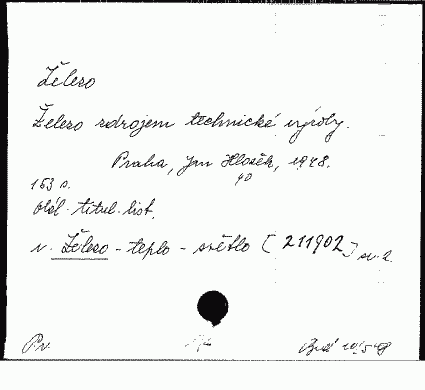 Železo
Železo zdrojem technické výroby.
Praha, Jan Hlosěk, 1948.
163 s.
obál. titul. list.
v. Železo - teplo - světlo [211902] sv. 2.
Pv. 10/5 48